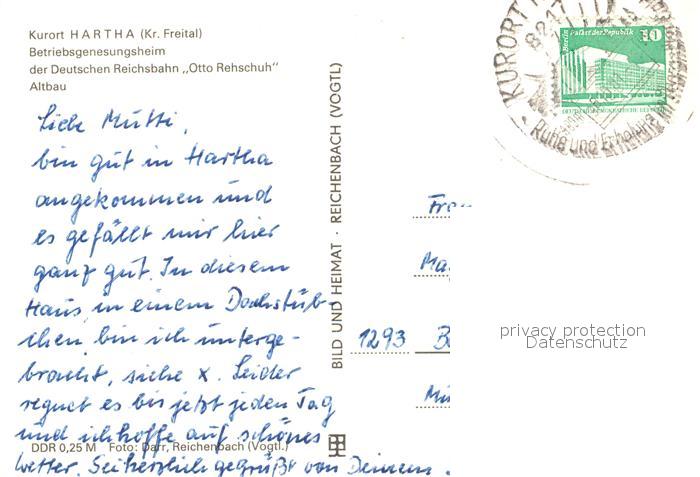 Kurort HARTHA (Kr. Freital)
Betriebsgenesungsheim
der Deutschen Reichsbahn „Otto Rehschuh"
Altbau
Liebe Mutti,
bin gut in Hartha
angekommen und
es gefällt mir hier
ganz gut. In diesem
Haus, in einem Dachstüb-
chen bin ich unterge-
bracht, siehe x. Leider
regnet es bis jetzt jeden Tag
und ich hoffe auf schönes
Wetter. Sei herzlich gegrüßt von Deinem
DDR 0,25 M Foto: Darr, Reichenbach (Vogtl.)
BILD UND HEIMAT · REICHENBACH (VOGTL)
1293
KURORT
8217
Ruhe und Erholung
Berlin Palast der Republik 10
privacy protection
Datenschutz